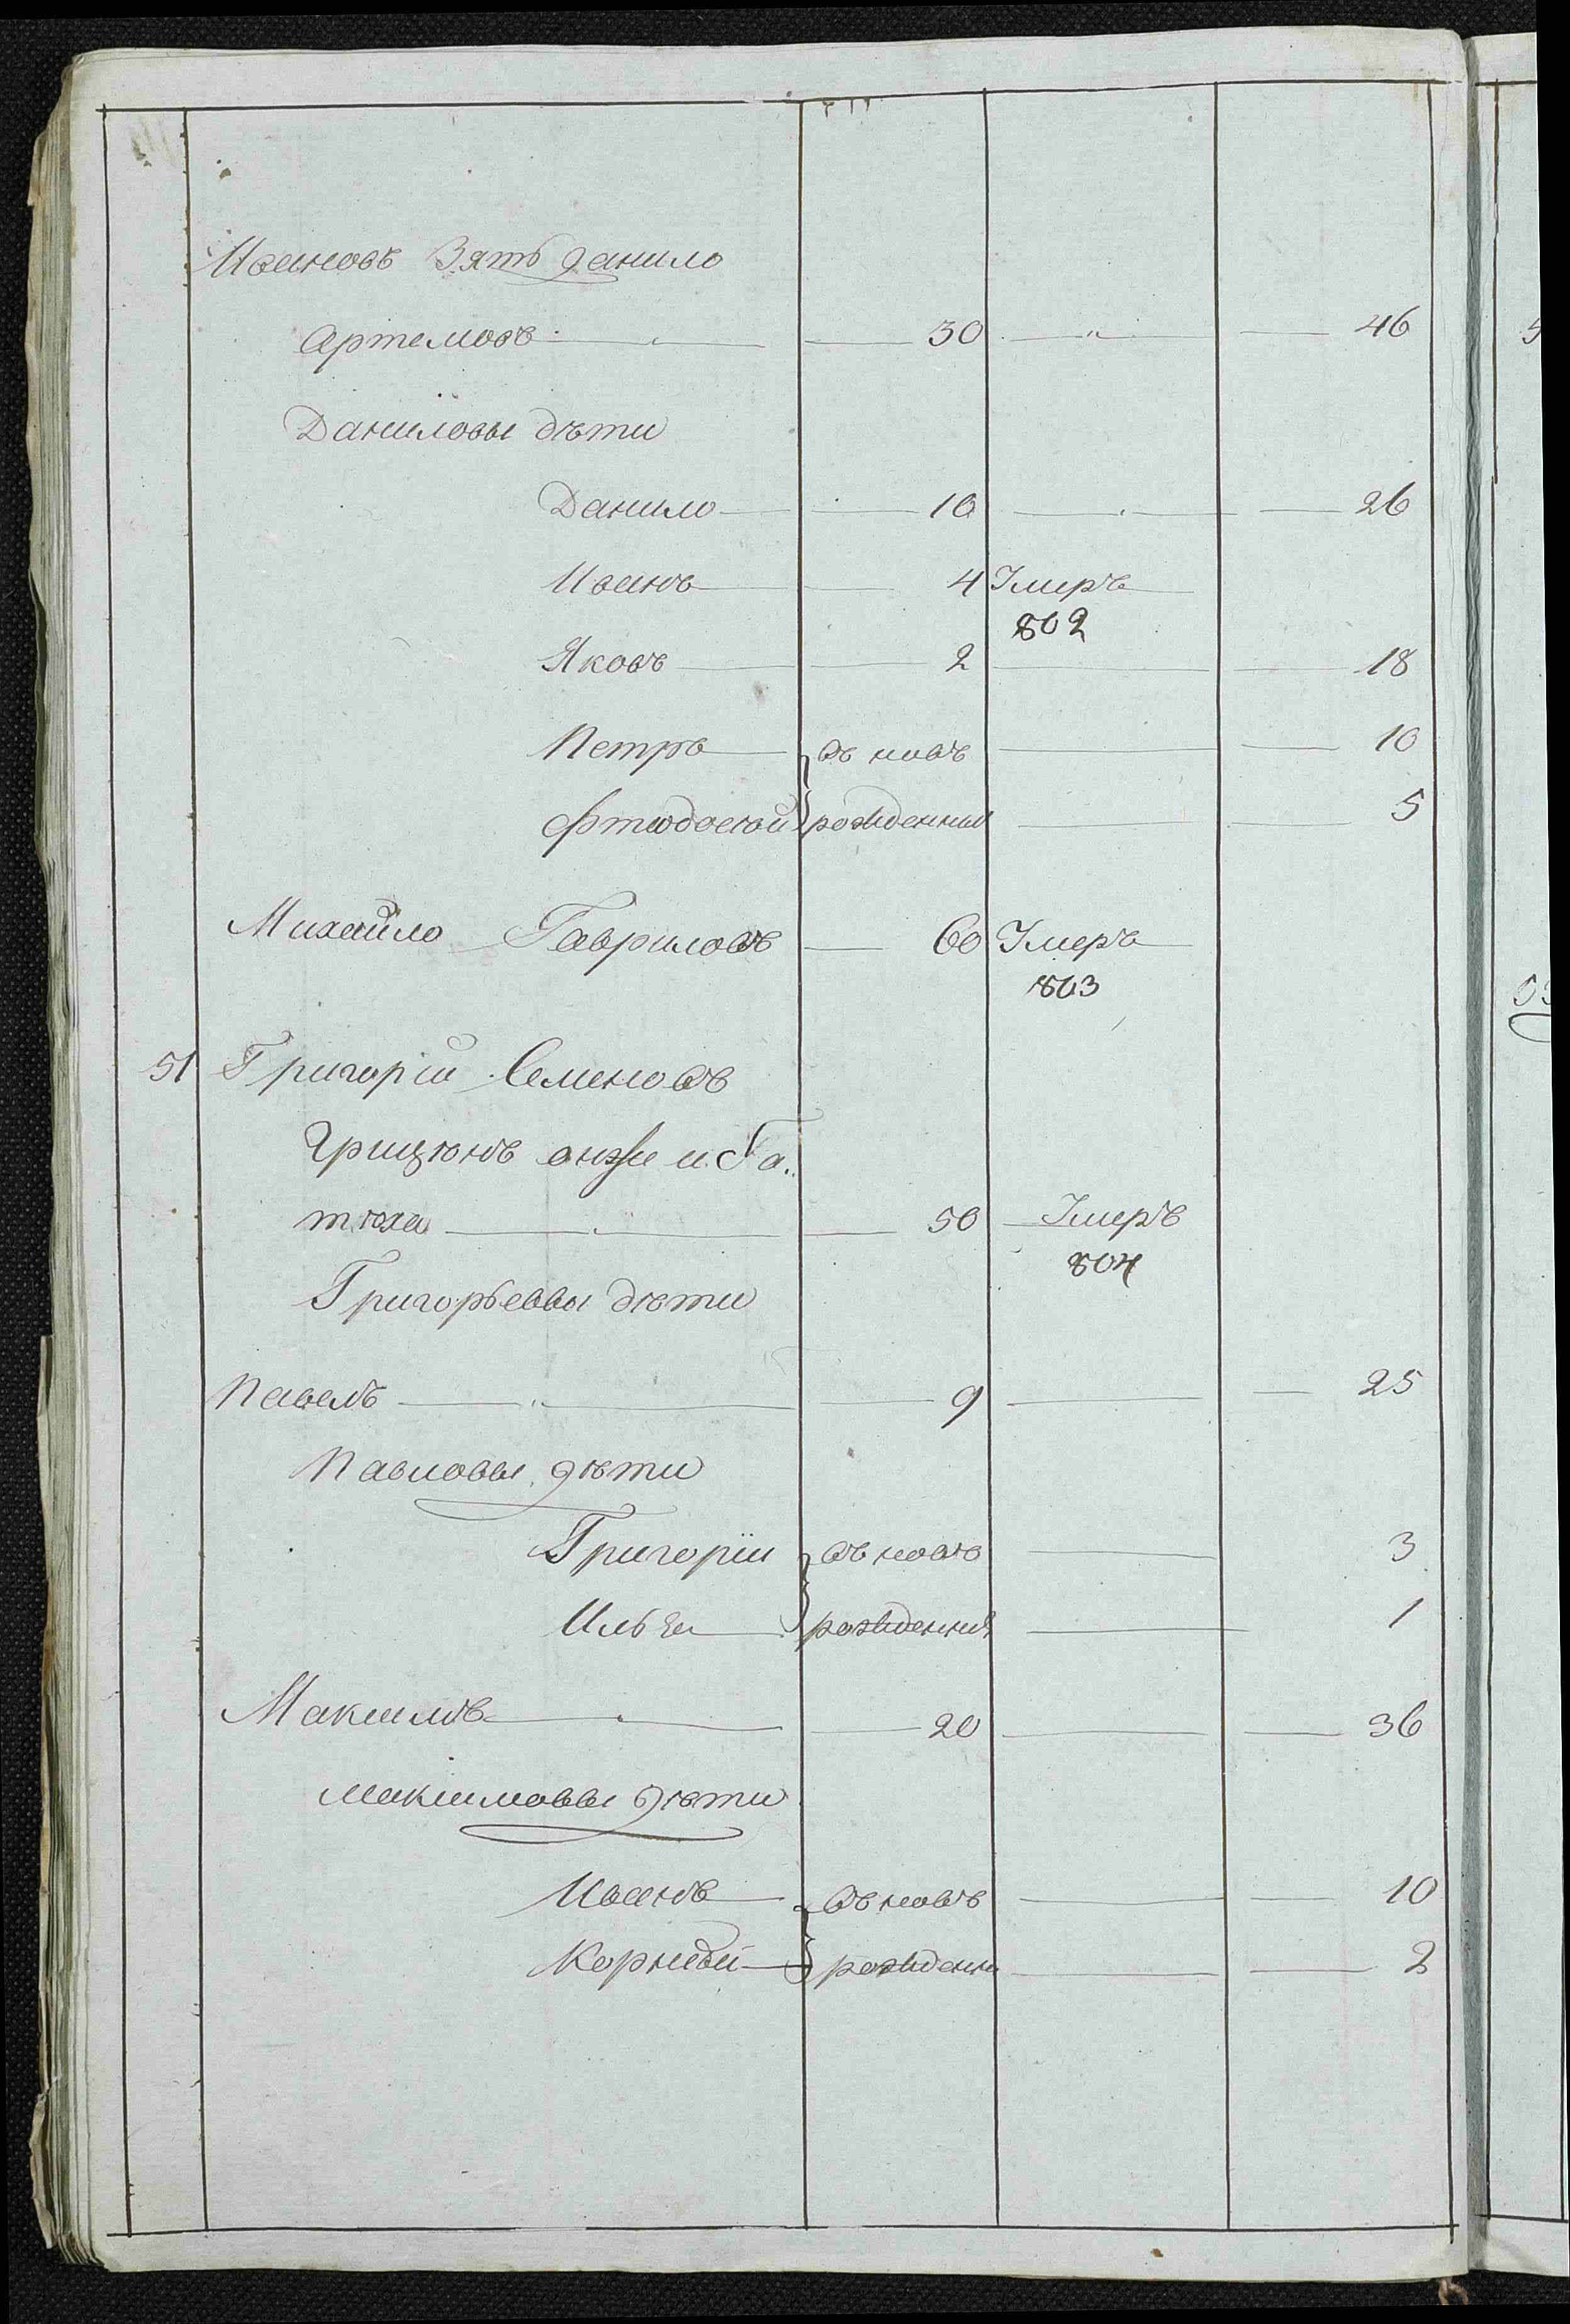 Ивановъ Зять Данило
Артемовъ 30 " 46
Даниловы дѣти
Данило 10 26
Иванъ 4 Умеръ
802
Яковъ 2 18
Петръ въ новъ 10
Фтеодосей рожденныи 5
Михайло Гавриловъ 60 Умеръ
803
51 Григорій Семеновъ
Грицюнъ онже и Га
тюха 50 Умеръ
804
Григорьевы дѣти
Павелъ 9 25
Павловы дѣти
Григорїи въ новѣ 3
Илья рожденныя 1
Максимъ 20 36
Максимовы дѣти
Иванъ въ новѣ 10
Корнѣй рожденны 2